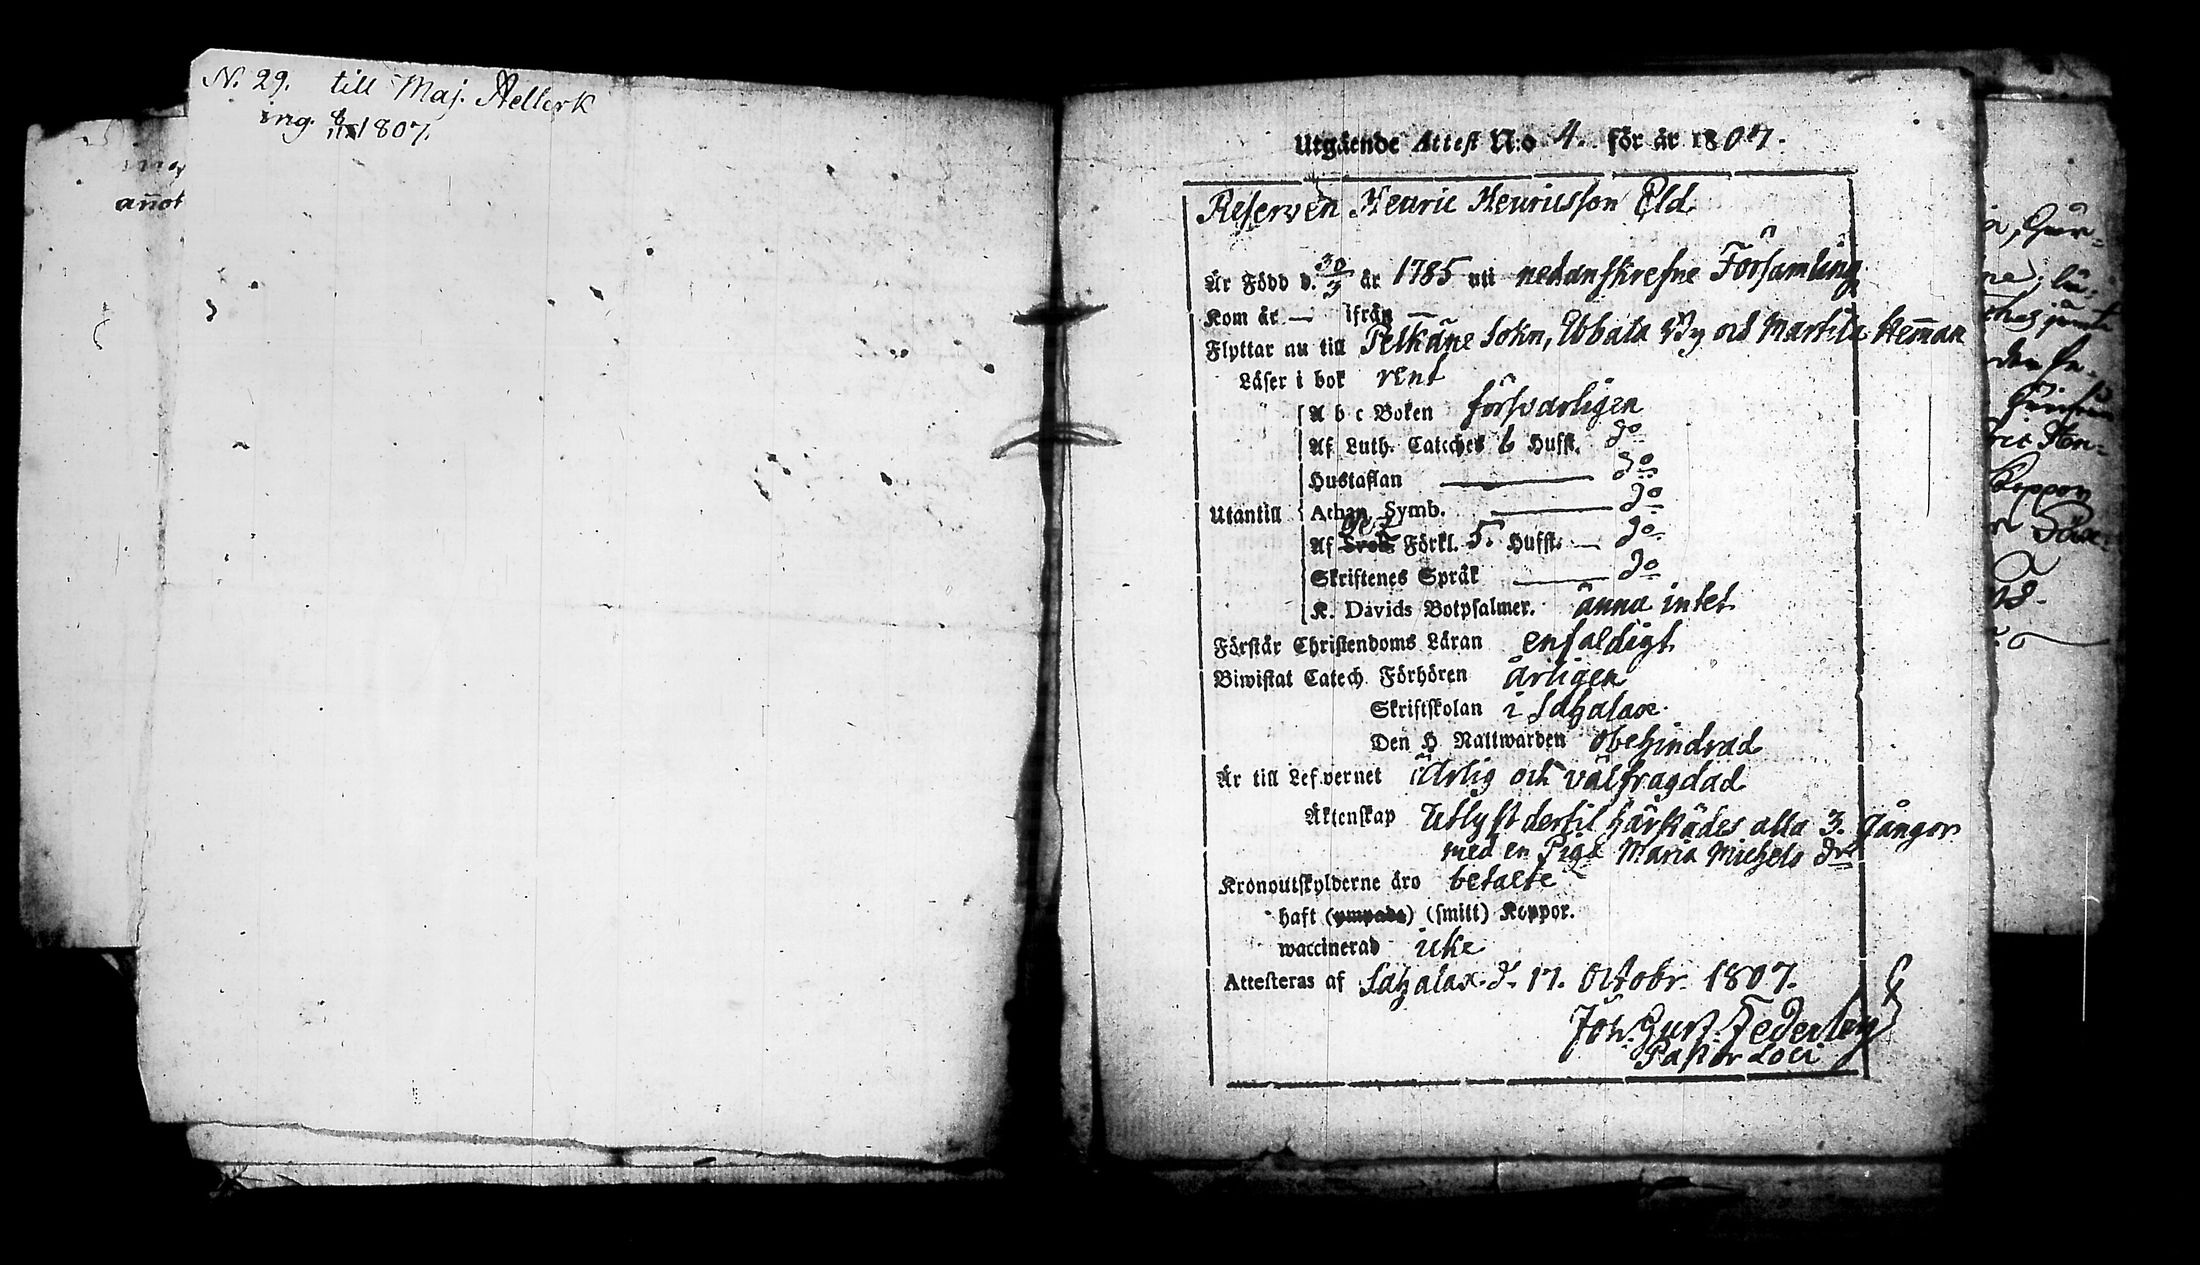 N. 29. till Maj. Aellerk
ing. 8/11 1807.
ing
anot
Utgående Attest N:o 4. för år 1807.
Reserven Henric Henricsson Eld
Är Född d. 30/3 år 1785 uti nedanskrefne Församling
Kom år — ifrån —
Flyttar nu till Pelkäne Sokn, Wy och Marttila Heman
Läser i bok rent
A b c Boken försvarligen
Af Luth. Cateches 6 Hufst. do
Hustaflan do
Utantill Athan. Symb. do
Af Sveb. Förkl. 5. Hufst. — do
Skriftenes Språk do
K. Davids Botpsalmer. änna intet
Förstår Christendoms Läran enfaldigt
Biwistat Catech. Förhören årligen
Skriftskolan i Sahalax.
Den H. Nattwarden obehindrad
Är till Lefvernet ärlig och välfragdad
Äktenskap Utlyst dertil härstädes alla 3. gångor
med en Piga Maria Michels dr
Kronoutskylderne äro betalte
haft (ympade) (smitt) Koppor.
waccinerad icke
Attesteras af Sahalax. d. 17. Octobr. 1807.
Joh. Gust. Federley
Pastor Loci